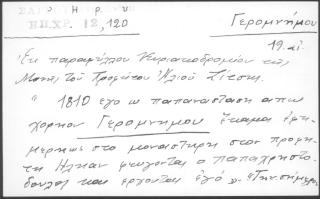 ΗΠ.ΧΡ. 12, 120
Γερομνήμου
19. αἰ.
Ἐκ παραφύλλου Κυριακοδρομίου τῆς
Μονῆς τοῦ Προφήτου Ἠλιοῦ Ζίτσης.
" 1810 εγο ω παπαναστασι απω
χοριον Γερομνημου έκαμα εφη-
μερηως στο μοναστηρη στον προφη-
τη Ηλιαν φευγοντας ο παπαχρηστο-
δουλος και εργοντας εγό